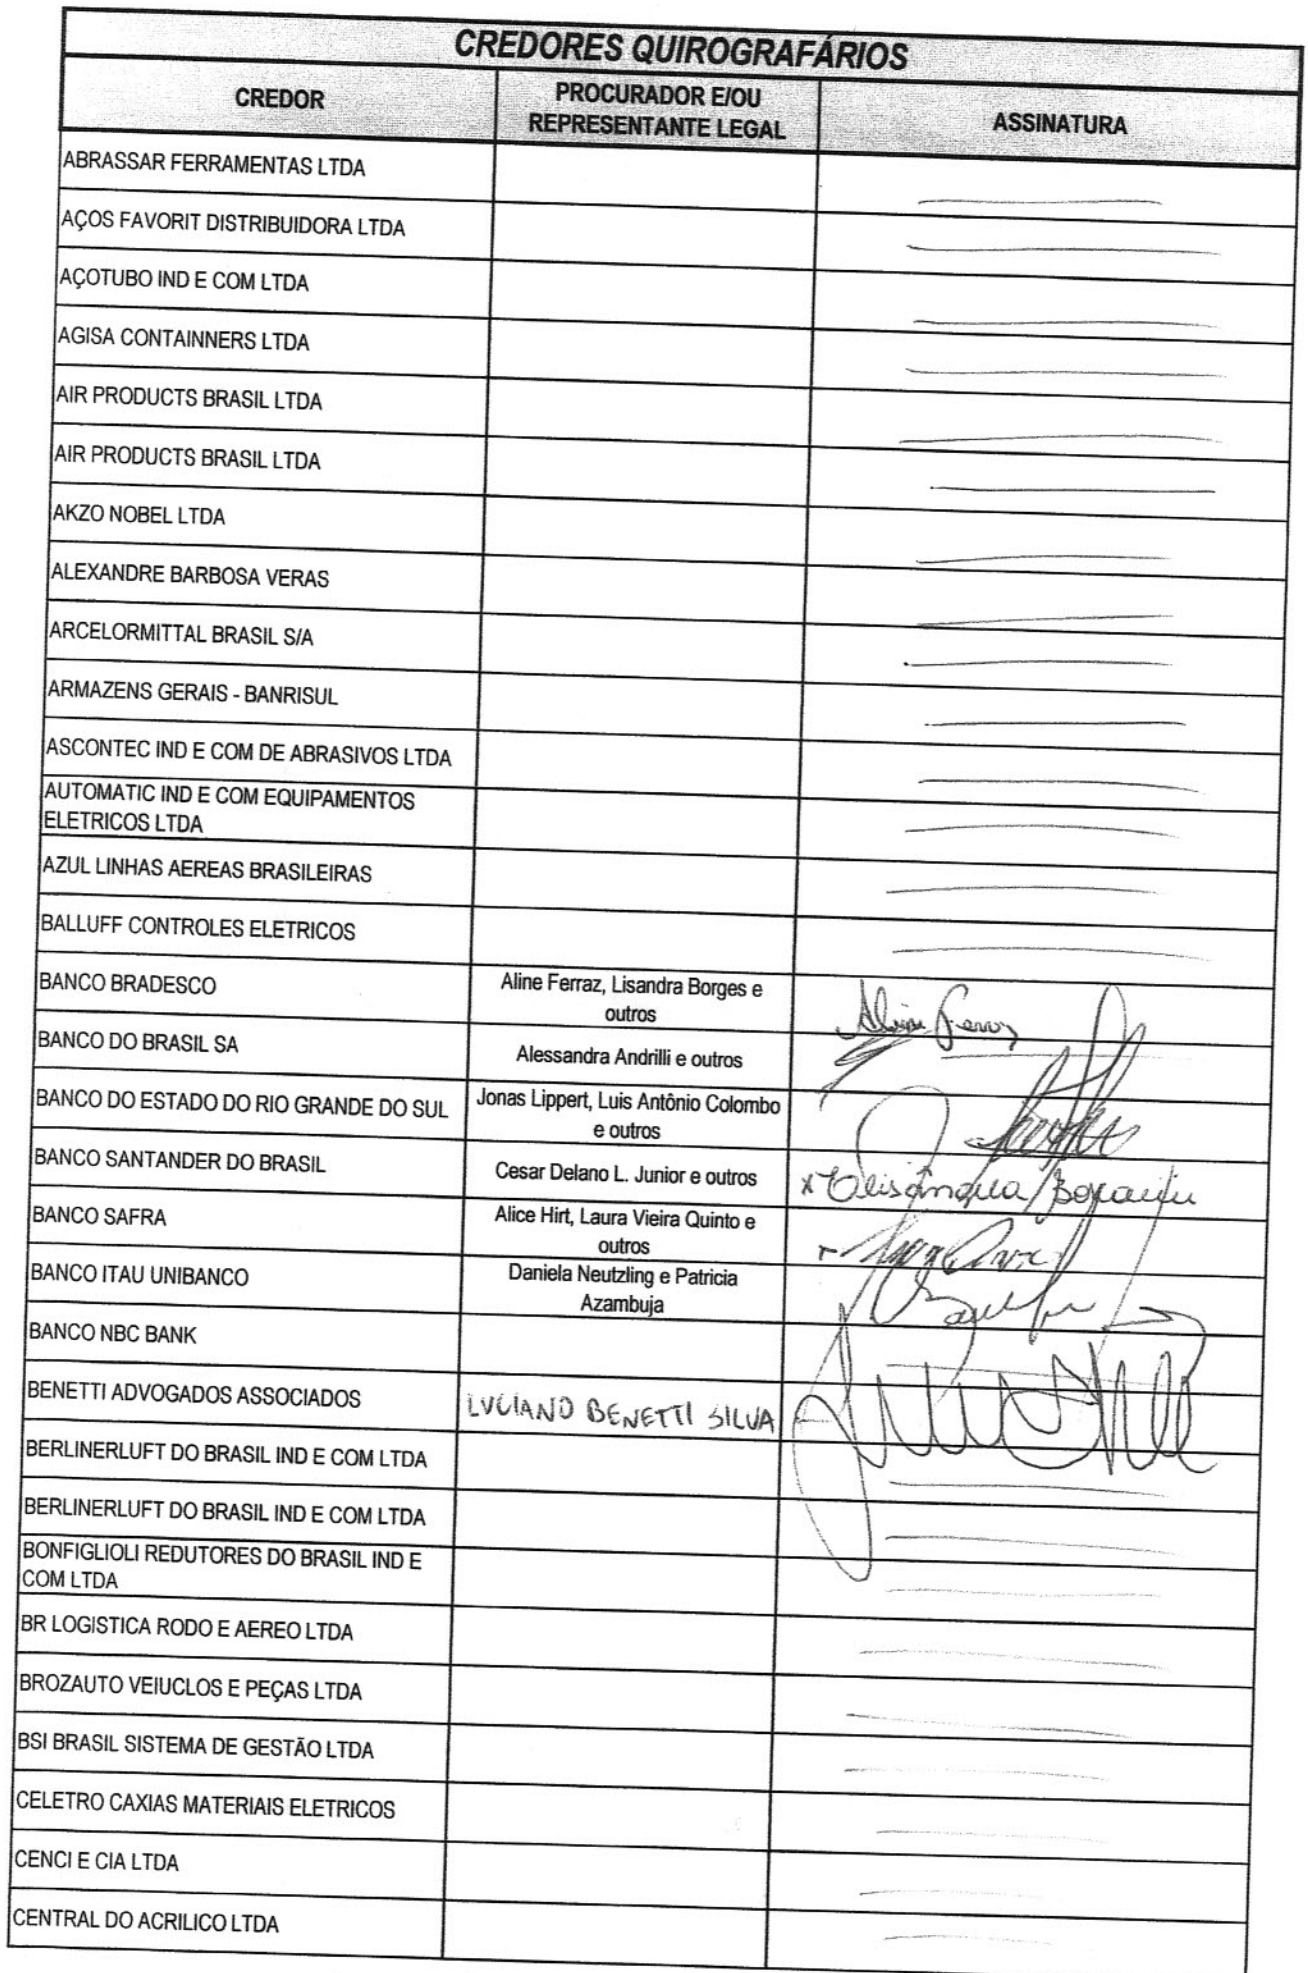 CREDORES QUIROGRAFÁRIOS
CREDOR
PROCURADOR E/OU
REPRESENTANTE LEGAL
ASSINATURA
ABRASSAR FERRAMENTAS LTDA
AÇOS FAVORIT DISTRIBUIDORA LTDA
AÇOTUBO IND E COM LTDA
AGISA CONTAINNERS LTDA
AIR PRODUCTS BRASIL LTDA
AIR PRODUCTS BRASIL LTDA
AKZO NOBEL LTDA
ALEXANDRE BARBOSA VERAS
ARCELORMITTAL BRASIL S/A
ARMAZENS GERAIS - BANRISUL
ASCONTEC IND E COM DE ABRASIVOS LTDA
AUTOMATIC IND E COM EQUIPAMENTOS
ELETRICOS LTDA
AZUL LINHAS AEREAS BRASILEIRAS
BALLUFF CONTROLES ELETRICOS
BANCO BRADESCO
Aline Ferraz, Lisandra Borges e
outros
Aline Ferraz
BANCO DO BRASIL SA
Alessandra Andrilli e outros
BANCO DO ESTADO DO RIO GRANDE DO SUL
Jonas Lippert, Luis Antônio Colombo
e outros
BANCO SANTANDER DO BRASIL
Cesar Delano L. Junior e outros
BANCO SAFRA
Alice Hirt, Laura Vieira Quinto e
outros
BANCO ITAU UNIBANCO
Daniela Neutzling e Patricia
Azambuja
BANCO NBC BANK
BENETTI ADVOGADOS ASSOCIADOS
LUCIANO BENETTI SILVA
BERLINERLUFT DO BRASIL IND E COM LTDA
BERLINERLUFT DO BRASIL IND E COM LTDA
BONFIGLIOLI REDUTORES DO BRASIL IND E
COM LTDA
BR LOGISTICA RODO E AEREO LTDA
BROZAUTO VEIUCLOS E PEÇAS LTDA
BSI BRASIL SISTEMA DE GESTÃO LTDA
CELETRO CAXIAS MATERIAIS ELETRICOS
CENCI E CIA LTDA
CENTRAL DO ACRILICO LTDA